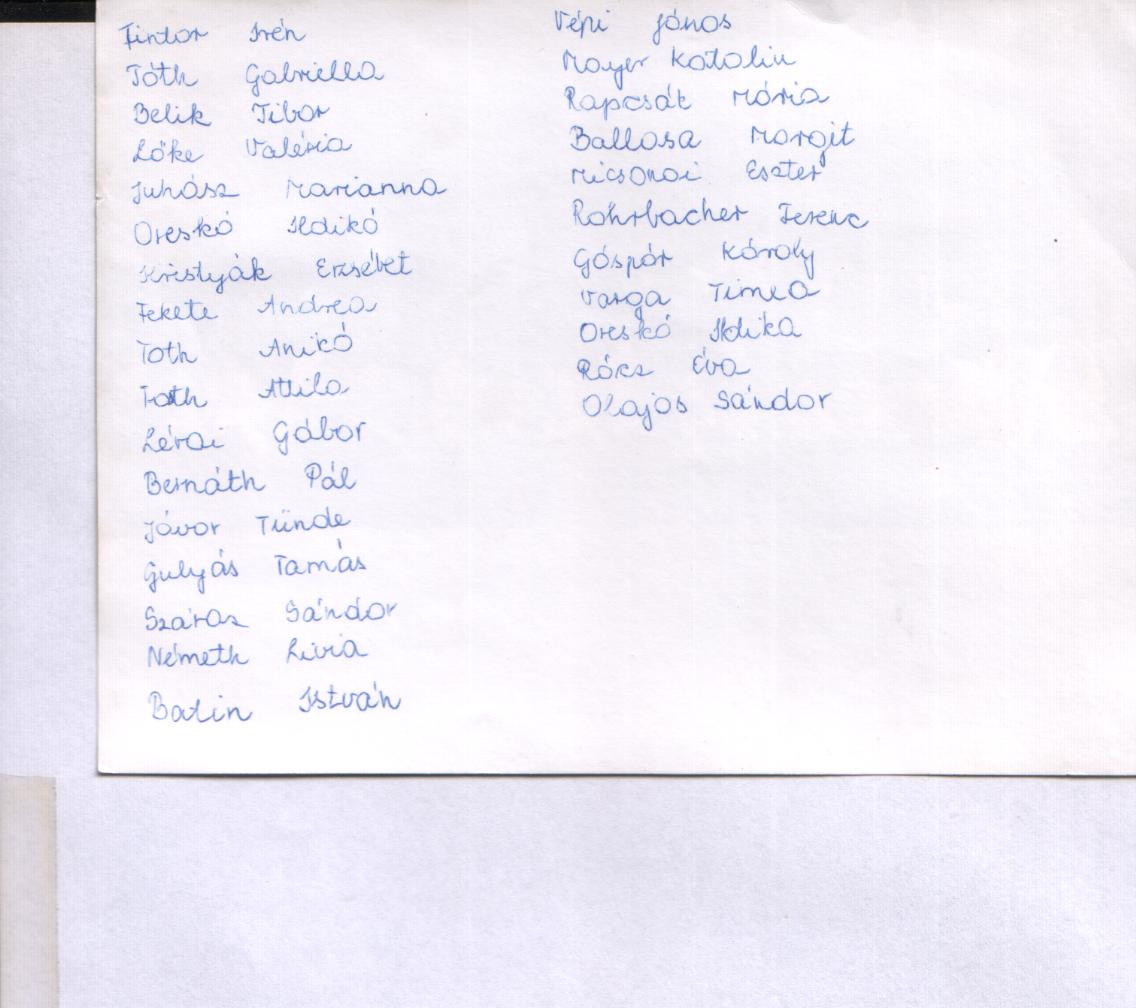 Fintor Irén
Tóth Gabriella
Belik Tibor
Lőke Valéria
Juhász Marianna
Oreskó Ildikó
Kristyák Erzsébet
Fekete Andrea
Tóth Anikó
Tóth Attila
Lévai Gábor
Bernáth Pál
Jávor Tünde
Gulyás Tamás
Száraz Sándor
Németh Lívia
Batin István
Vépi János
Mayer Katalin
Rapcsák Mária
Ballosa Margit
Micsonai Eszter
Rohrbacher Ferenc
Gáspár Károly
Varga Timea
Oreskó Ildika
Rácz Éva
Olajos Sándor